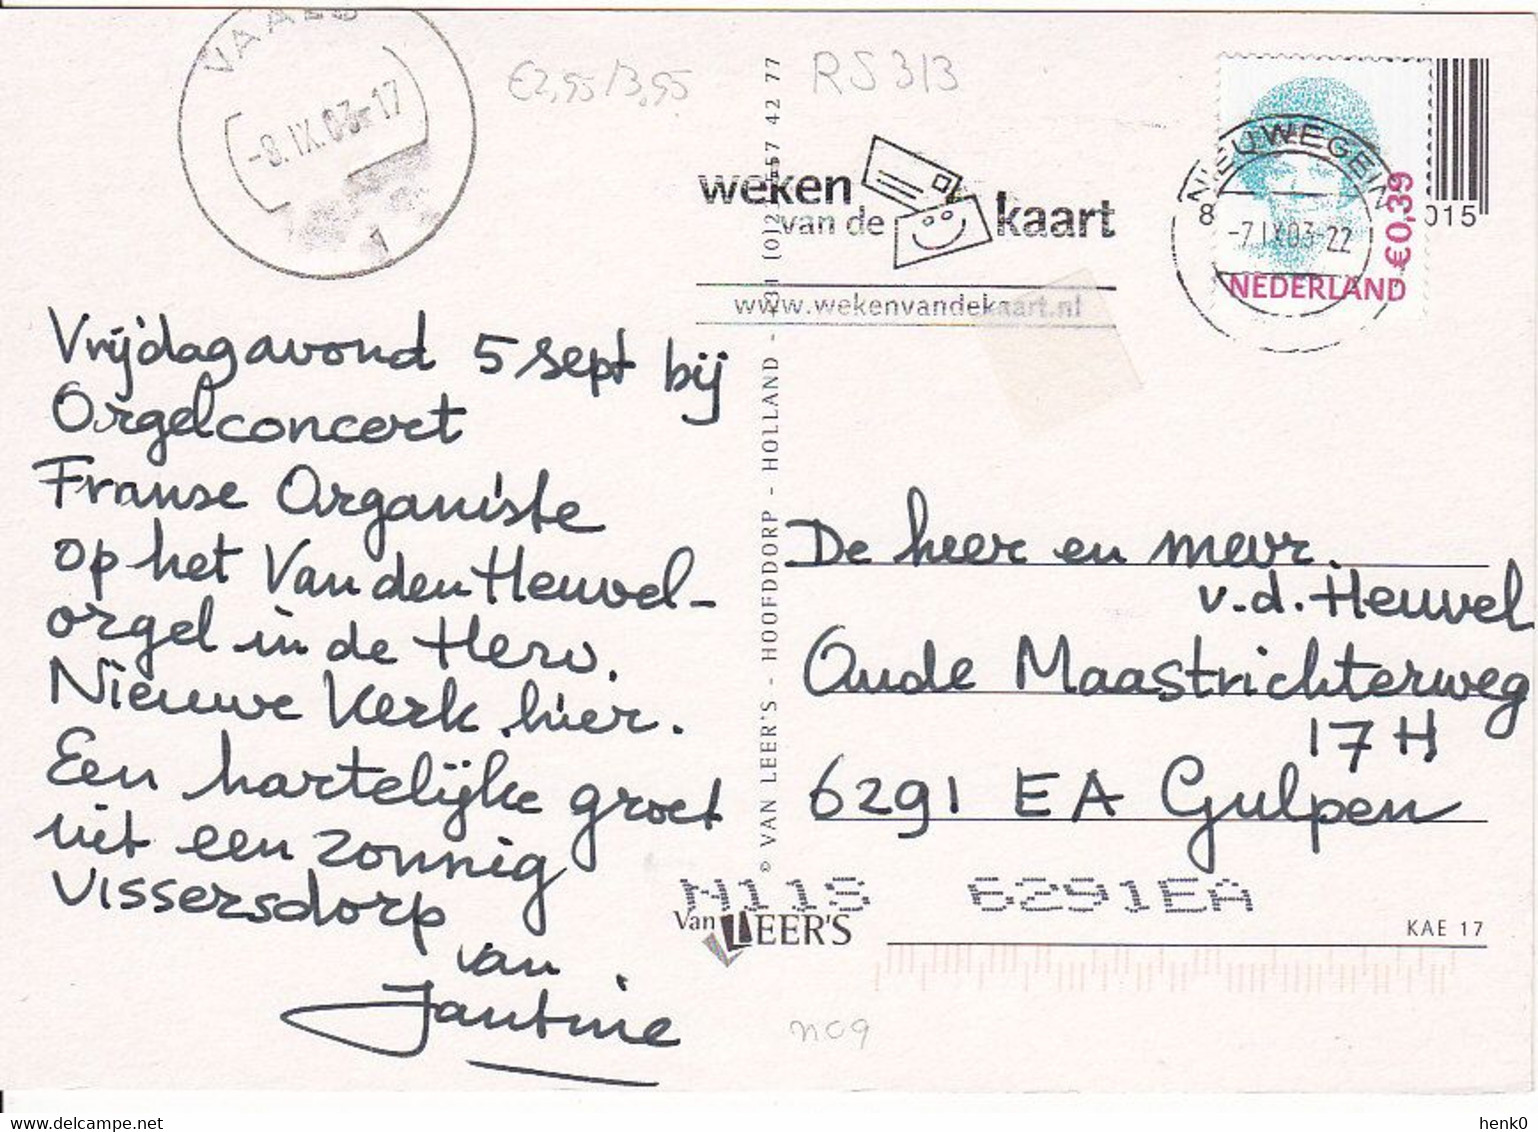 VAALS
-8.IX.03-17
1
€2,95/3,95
RS 313
weken
van de
kaart
www.wekenvandekaart.nl
NIEUWEGEIN
8
-7.IX.03-22
€0,39
NEDERLAND
015
Vrijdagavond 5 sept bij
Orgelconcert
Franse Organiste
op het Van den Heuvel-
orgel in de Herv.
Nieuwe Kerk hier.
Een hartelijke groet
uit een zonnig
Vissersdorp
van
Jantine
© VAN LEER'S - HOOFDDORP - HOLLAND -
De heer en mevr.
v.d. Heuvel
Oude Maastrichterweg
17 H
6291 EA Gulpen
N11S 6291EA
Van LEER'S
KAE 17
nc9
www.delcampe.net
henk0